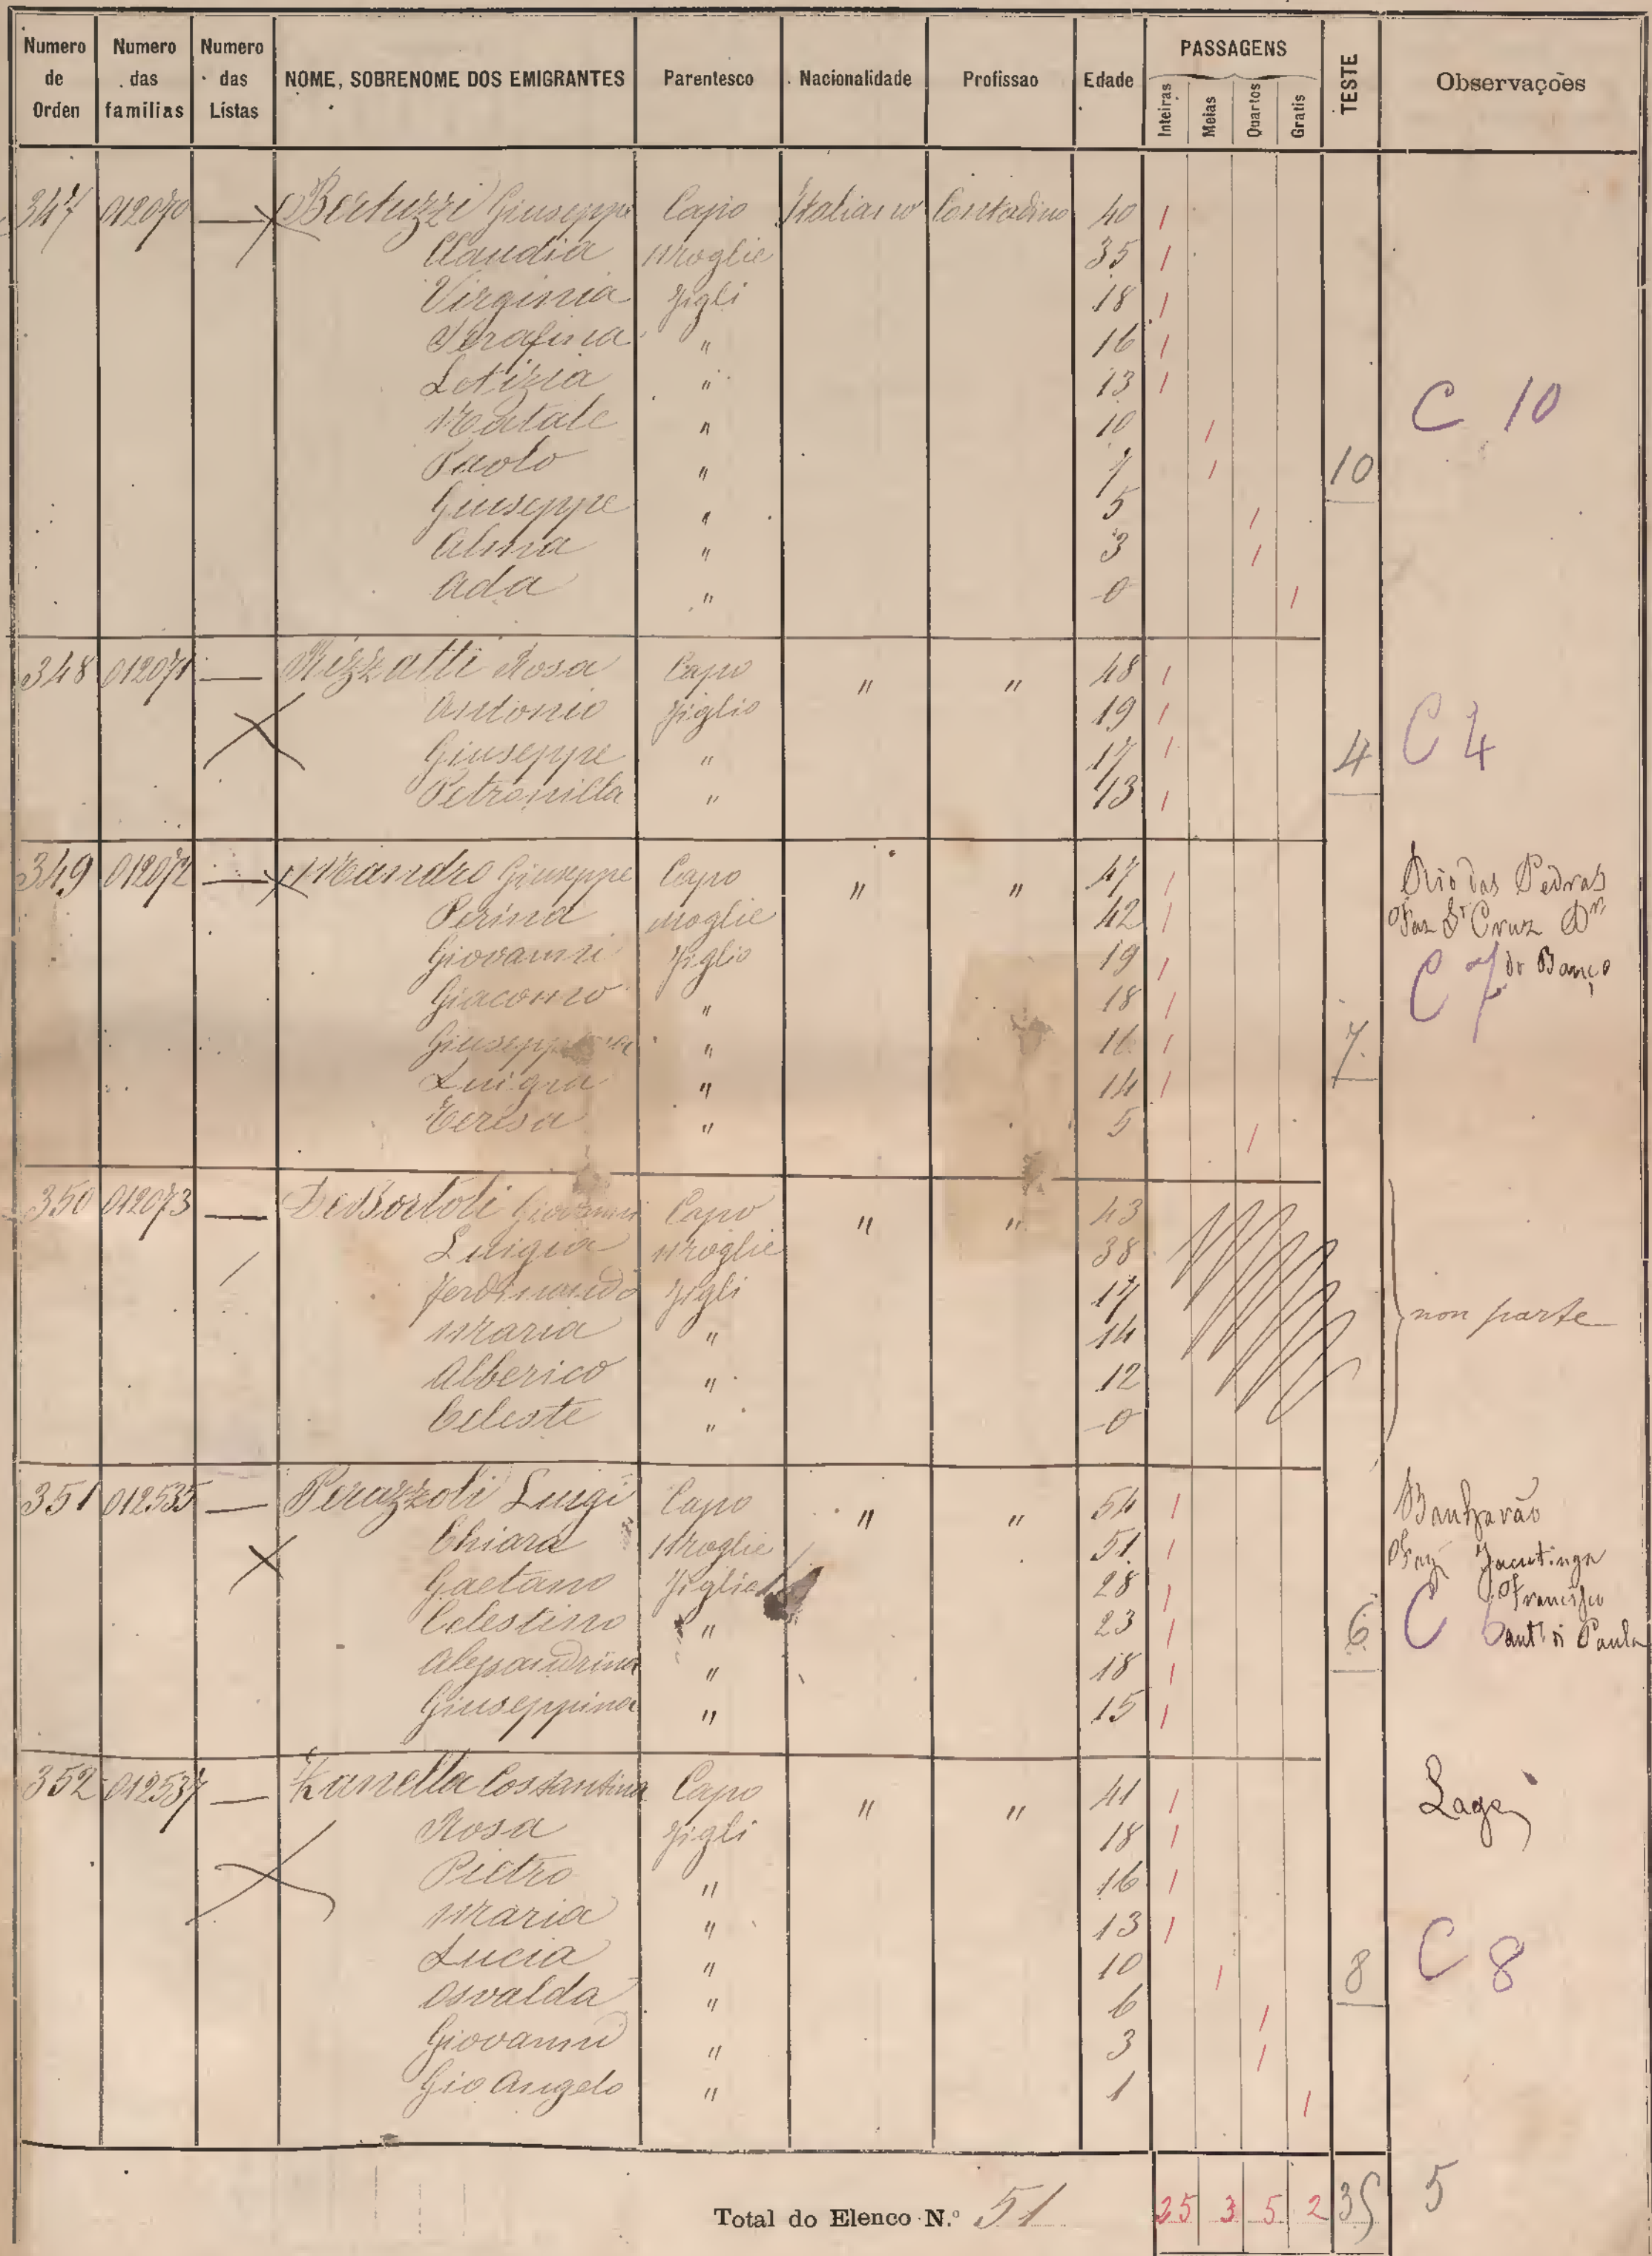 Numero de Orden | Numero das familias | Numero das Listas | NOME, SOBRENOME DOS EMIGRANTES | Parentesco | Nacionalidade | Profissao | Edade | PASSAGENS | Inteiras | Meias | Quartos | Gratis | TESTE | Observações
347 | 012070 | — | Bertuzzi Giuseppe | Capo | Italiano | Contadino | 40 | 1
Claudia | Moglie | 35 | 1
Virginia | Figli | 18 | 1
Serafina | " | 16 | 1
Letizia | " | 13 | 1 | C 10
Natale | " | 10 | 1
Paolo | " | 7 | 1 | 10
Giuseppe | " | 5 | 1
Alma | " | 3 | 1
Ada | " | 0 | 1
348 | 012071 | — | Rizzatti Rosa | Capo | " | " | 48 | 1
Antonio | Figlio | 19 | 1 | C 4
Giuseppe | " | 17 | 1 | 4
Petronilla | " | 13 | 1
349 | 012072 | — | Mandro Giuseppe | Capo | " | " | 47 | 1 | Rio das Pedras
Perina | Moglie | 42 | 1 | Faz Sta Cruz
Giovanni | Figlio | 19 | 1 | C 7 do Banco
Giacomo | " | 18 | 1
Giuseppina | " | 16 | 1 | 7
Luigia | " | 14 | 1
Teresa | " | 5 | 1
350 | 012073 | — | De Bortoli Giovanni | Capo | " | " | 43
Luigia | Moglie | 38
Ferdinando | Figli | 17 | non parte
Maria | " | 14
Alberico | " | 12
Celeste | " | 0
351 | 012535 | — | Perazzoli Luigi | Capo | " | " | 54 | 1 | Banharão
Chiara | Moglie | 51 | 1 | Faz Jacutinga
Gaetano | Figlio | 28 | 1 | Francisco
Celestino | " | 23 | 1 | 6 | C 6 Paula
Alessandrina | " | 18 | 1
Giuseppina | " | 15 | 1
352 | 012537 | — | Zanella Costantina | Capo | " | " | 41 | 1 | Lage
Rosa | Figli | 18 | 1
Pietro | " | 16 | 1
Maria | " | 13 | 1 | C 8
Lucia | " | 10 | 1 | 8
Osvalda | " | 6 | 1
Giovanni | " | 3 | 1
Gio Angelo | " | 1 | 1
Total do Elenco N.º 51 | 25 | 3 | 5 | 2 | 35 | 5